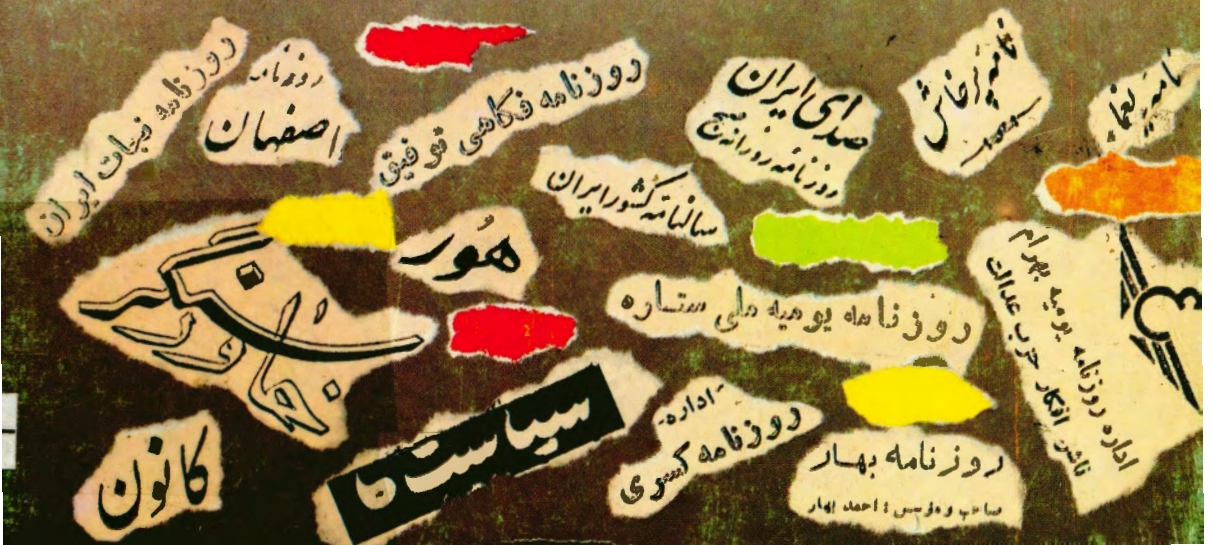 روزنامه نجات ایران
روزنامه
اصفهان
روزنامه فکاهی توفیق
صدای ایران
روزنامه روزانه صبح
نامه پرخاش
نامه یغما
سالنامه کشور ایران
هور
روزنامه یومیه ملی ستاره
اداره روزنامه یومیه بهرام
ناشر افکار حزب عدالت
سیاست ما
اداره
روزنامه کسری
روزنامه بهار
صاحب و مؤسس : احمد بهار
کانون